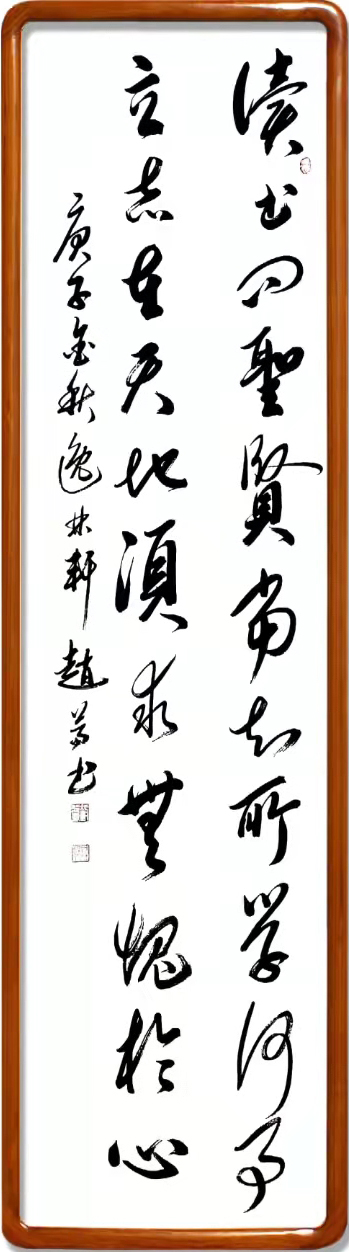 讀书问聖賢当知所學何事
立志在天地須求無愧於心
庚子金秋逸林軒 趙 书